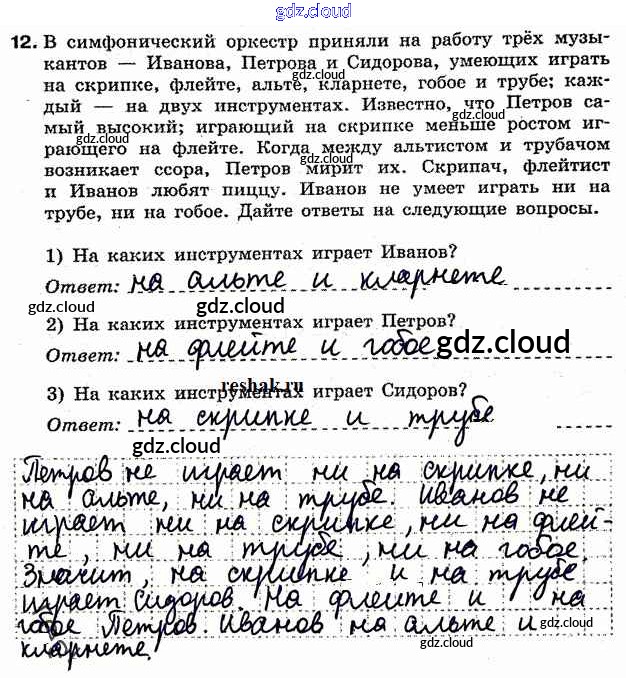 gdz.cloud
12. В симфонический оркестр приняли на работу трёх музы-
gdz.cloud gdz.cloud
кантов — Иванова, Петрова и Сидорова, умеющих играть
на скрипке, флейте, альте, кларнете, гобое и трубе; каж-
gdz.cloud
дый — на двух инструментах. Известно, что Петров са-
мый высокий; играющий на скрипке меньше ростом иг-
gdz.cloud gdz.cloud
рающего на флейте. Когда между альтистом и трубачом
gdz.cloud
возникает ссора, Петров мирит их. Скрипач, флейтист
и Иванов любят пиццу. Иванов не умеет играть ни на
трубе, ни на гобое. Дайте ответы на следующие вопросы.
gdz.cloud
1) На каких инструментах играет Иванов?
Ответ: на альте и кларнете
gdz.cloud gdz.cloud
2) На каких инструментах играет Петров?
gdz.cloud
Ответ: на флейте и гобое
gdz.cloud
reshak.ru
3) На каких инструментах играет Сидоров?
Ответ: на скрипке и трубе
gdz.cloud
gdz.cloud
Петров не играет ни на скрипке, ни
на альте, ни на трубе. Иванов не
gdz.cloud
играет ни на скрипке, ни на флей-
те, ни на трубе, ни на гобое.
gdz.cloud
Значит, на скрипке и на трубе
играет Сидоров. На флейте и на
gdz.cloud
гобое Петров. Иванов на альте и
gdz.cloud
кларнете.